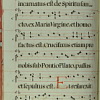 incarnatus est de Spiritu san
cto ex Maria Virgine et homo
factus est Crucifixus etiam pro
nobis sub Pontio Pilato passus
et sepultus est Et